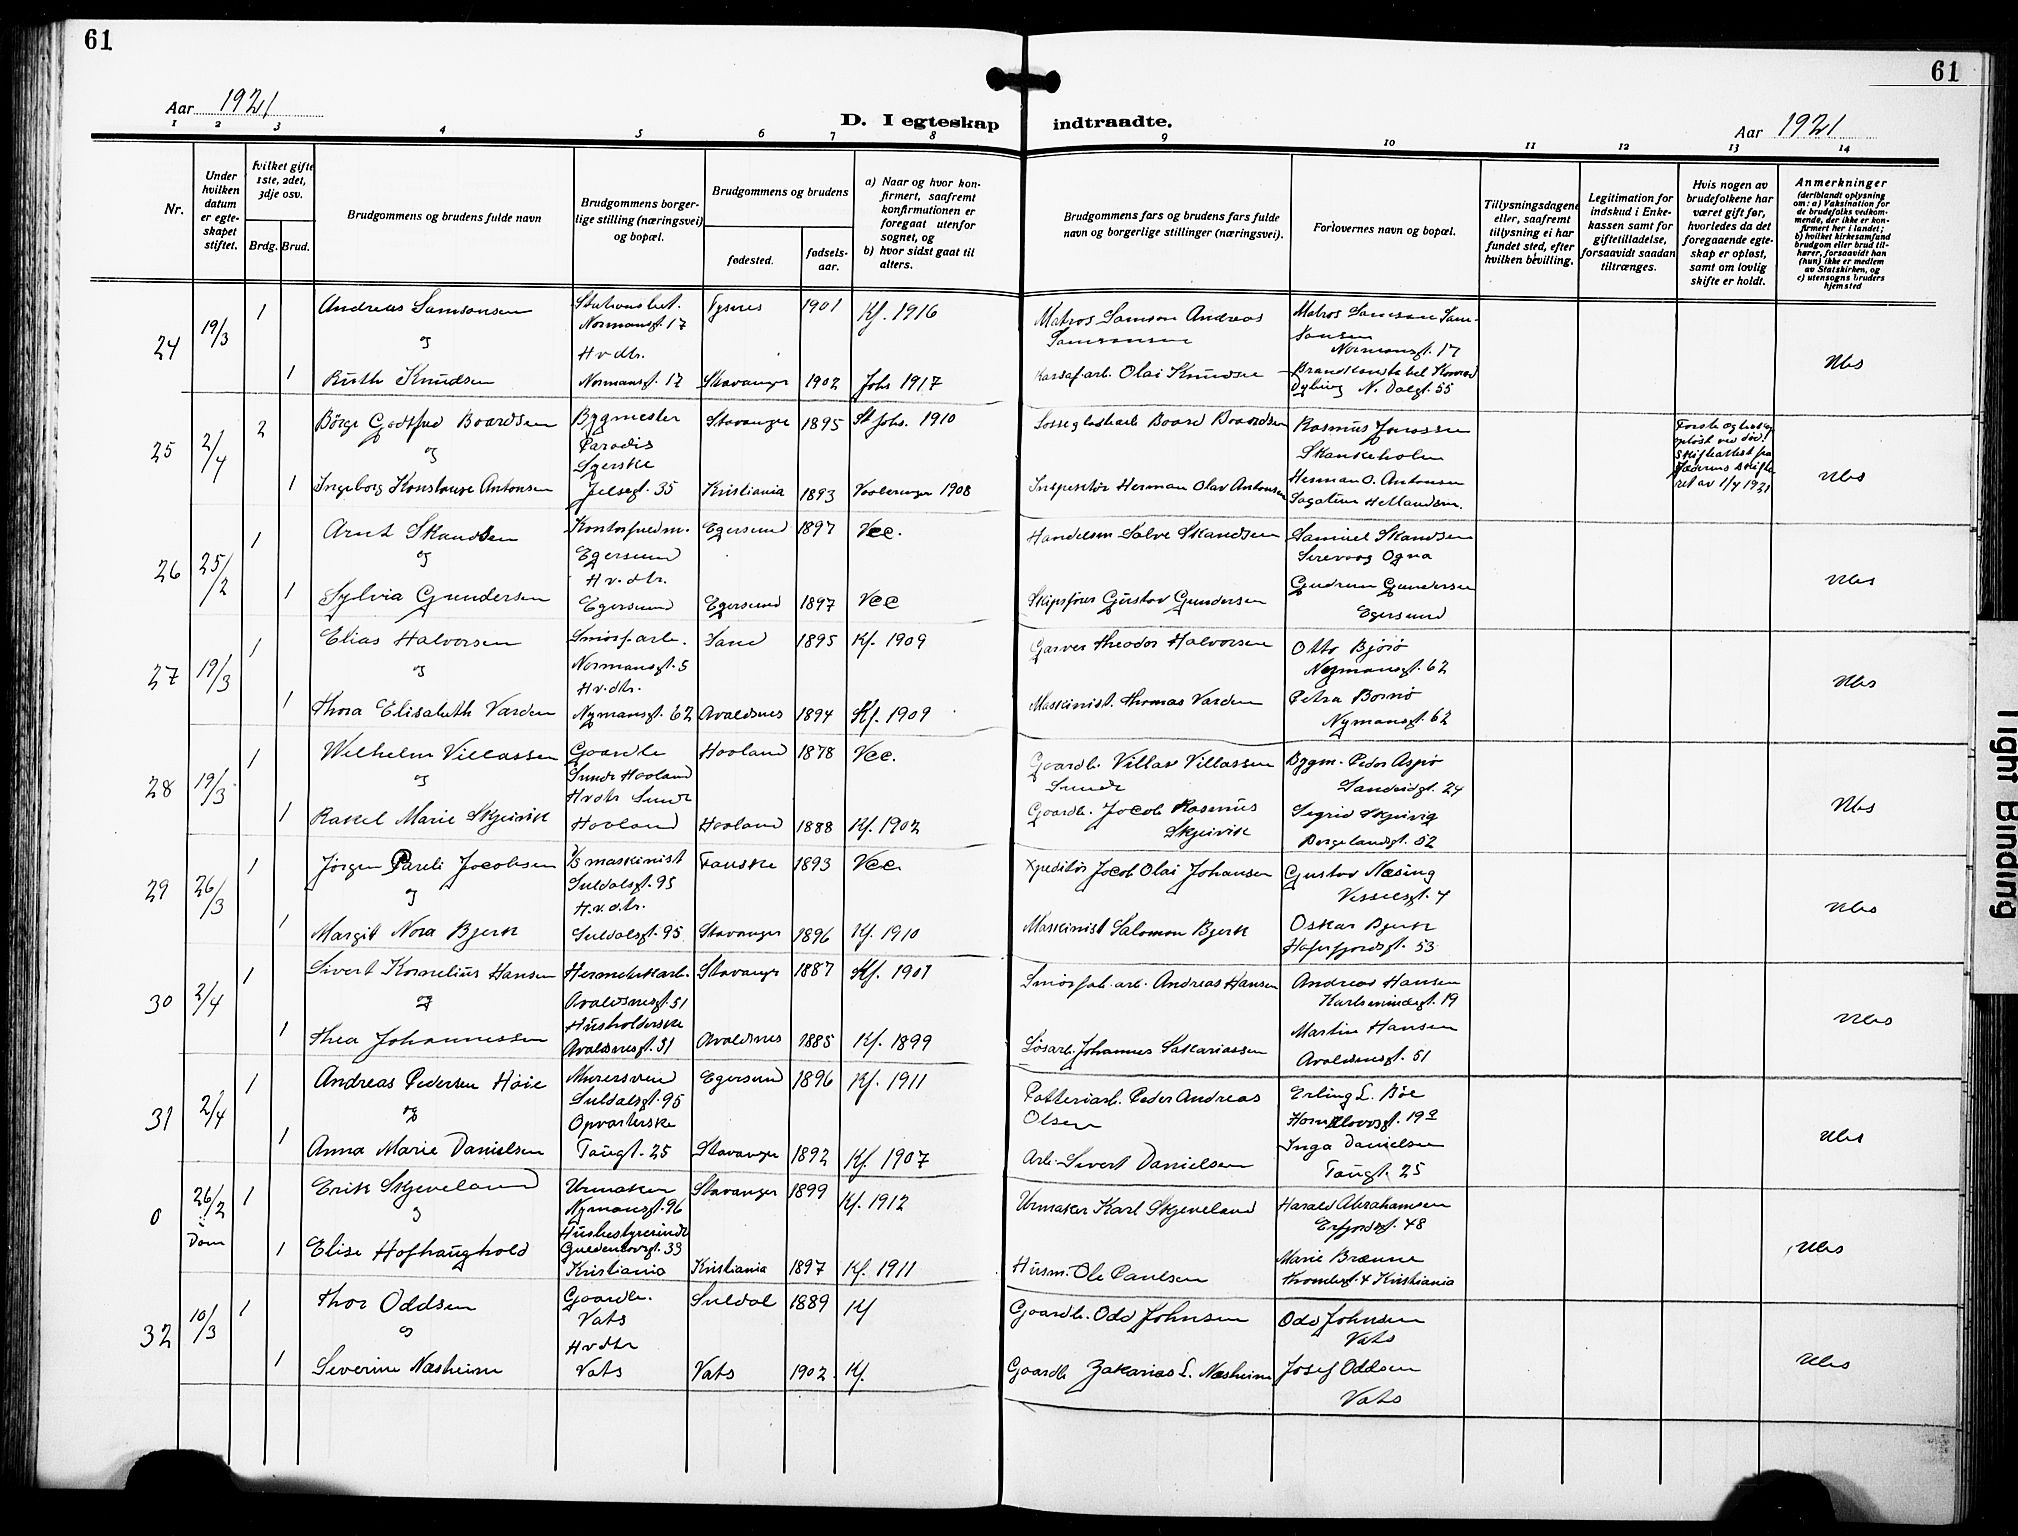 61
61
Aar 1921
D. I egteskap indtraadte.
Aar 1921
1 2 3 4 5 6 7 8 9 10 11 12 13 14
Nr.
Under hvilken datum er egteskapet stiftet.
Hvilket gifte 1ste, 2det, 3dje osv.
Brdg. Brud.
Brudgommens og brudens fulde navn
Brudgommens borgerlige stilling (næringsvei) og bopæl.
Brudgommens og brudens
fødested.
fødselsaar.
a) Naar og hvor konfirmert, saafremt konfirmationen er foregaat utenfor sognet, og
b) hvor sidst gaat til alters.
Brudgommens fars og brudens fars fulde navn og borgerlige stillinger (næringsvei).
Forlovernes navn og bopæl.
Tillysningsdagene eller, saafremt tillysning ei har fundet sted, efter hvilken bevilling.
Legitimation for indskud i Enkekassen samt for giftetilladelse, forsaavidt saadan tiltrænges.
Hvis nogen av brudefolkene har været gift før, hvorledes da det foregaaende egteskap er opløst, samt om lovlig skifte er holdt.
Anmerkninger
(deriblandt oplysning om: a) Vaksination for de brudefolks vedkommende, der ikke er konfirmert her i landet; b) hvilket kirkesamfund brudgom eller brud tilhører, forsaavidt han (hun) ikke er medlem av Statskirken, og c) utensogns bruders hjemsted
24 19/3 1 Andreas Samsonsen
Normansgt. 17
1901 Kf. 1916
Matros Samson Andreas Samsonsen
Matros Samson Samsonsen
Normansgt. 17
og
Hvdtr.
1 Ruth Knudsen Normansgt. 17 Stavanger 1902 Johs 1917
Olai Knudsen
Brandkonstabel
N. Dalgt. 55
25 2/4 2 Børge Godtfred Boardsen Bygmester
Paradis
Stavanger 1895 St Johs. 1910
Board Boardsen
Rasmus
og
1 Ingeborg Konstanse Antonsen
Jelsegt. 35 Kristiania 1893 Vaalerengen 1908
Inspektør Herman Olav Antonsen
Herman O. Antonsen
av 1/4 1921
26 25/2 1 Arnt Skandsen
Egersund
Egersund 1897 Vee.
Handelsm Salve Skandsen
Samuel Skandsen
Sirevaag Ogna
og
Hv.dtr.
1 Sylvia Gundersen Egersund Egersund 1897 Vee
Skipsfører Gustav Gundersen
Gudrun Gundersen
Egersund
27 19/3 1 Elias Halvorsen
Normansgt. 5
Sand 1895 Kf. 1909
Garver Theodor Halvorsen
Otto Bjørø
Nymansgt. 62
og
Hv.dtr.
1 Thora Elisabeth Varden Nymansgt. 62 Avaldsnes 1894 Kf. 1909
Maskinist. Thomas Varden
Petra
Nymansgt. 62
28 19/3 1 Wilhelm Villassen Goardbr
Sunde Hooland
Hooland 1878 Vee.
Goardb. Villas Villassen
Sunde
Bygm. Peder Aspø
Sandvigt. 24
og
Hvdtr Sunde
Hooland
1 Rakel Marie Skjeivik Hooland 1888 Kf. 1902
Goardb. Jacob Rasmus Skjeivik
Sigrid Skjeivig
Bergelandsgt. 52
29 26/3 1 Jørgen Pareli Jacobsen
maskinist
Suldalsgt. 95
Fauske 1893 Vee
Jacob Olai Johansen
Gustav Næsing
Vesselsgt. 4
og
H.v.dtr.
1 Margit Nora Bjerk Suldalsgt. 95 Stavanger 1896 Kf. 1910
Maskinist Salomon Bjerk
Oskar Bjerk
Hafrsfjordsgt. 53
30 2/4 1 Sivert Kornelius Hansen Hermetikkarb.
Avaldsnesgt. 51
Stavanger 1887 Kf. 1901
Andreas Hansen
Andreas Hansen
Karlsmindegt. 19
og
Husholderske
1 Thea Johannessen Avaldsnesgt. 51 Avaldsnes 1885 Kf. 1899
Løsarb. Johannes Sakariassen
Martin Hansen
Avaldsnesgt. 51
31 2/4 1 Andreas Pedersen Høie Murersvend
Suldalsgt. 95
Egersund 1896 Kf. 1911
Potteriarb. Peder Andreas Olsen
Erling L. Bøe
19a
og
Opvarterske
1 Anna Marie Danielsen Taugt. 25 Stavanger 1892 Kf. 1907
Arb. Sivert Danielsen
Inga Danielsen
Taugt. 25
0 26/2 i Dom 1 Erik Skjeveland Urmaker
Nymansgt. 96
Stavanger 1899 Kf. 1912
Urmaker Karl Skjeveland
Harald Abrahamsen
Erfjordsgt. 48
og
Husbestyrerinde
1 Elise Hofhaughold
33
Kristiania Kristiania 1897 Kf. 1911
Husm. Ole Paulsen
Marie Brænne
4 Kristiania
32 10/3 1 Thor Oddsen Goardb.
Vats
Suldal 1889 Kf
Goardb. Odd Johnsen
Odd Johnsen
Vats
og
Hvdtr
1 Severine Næsheim Vats Vats 1902. Kf.
Goardb Zakarias L. Næsheim
Josef Oddsen
Vats
Tight Binding